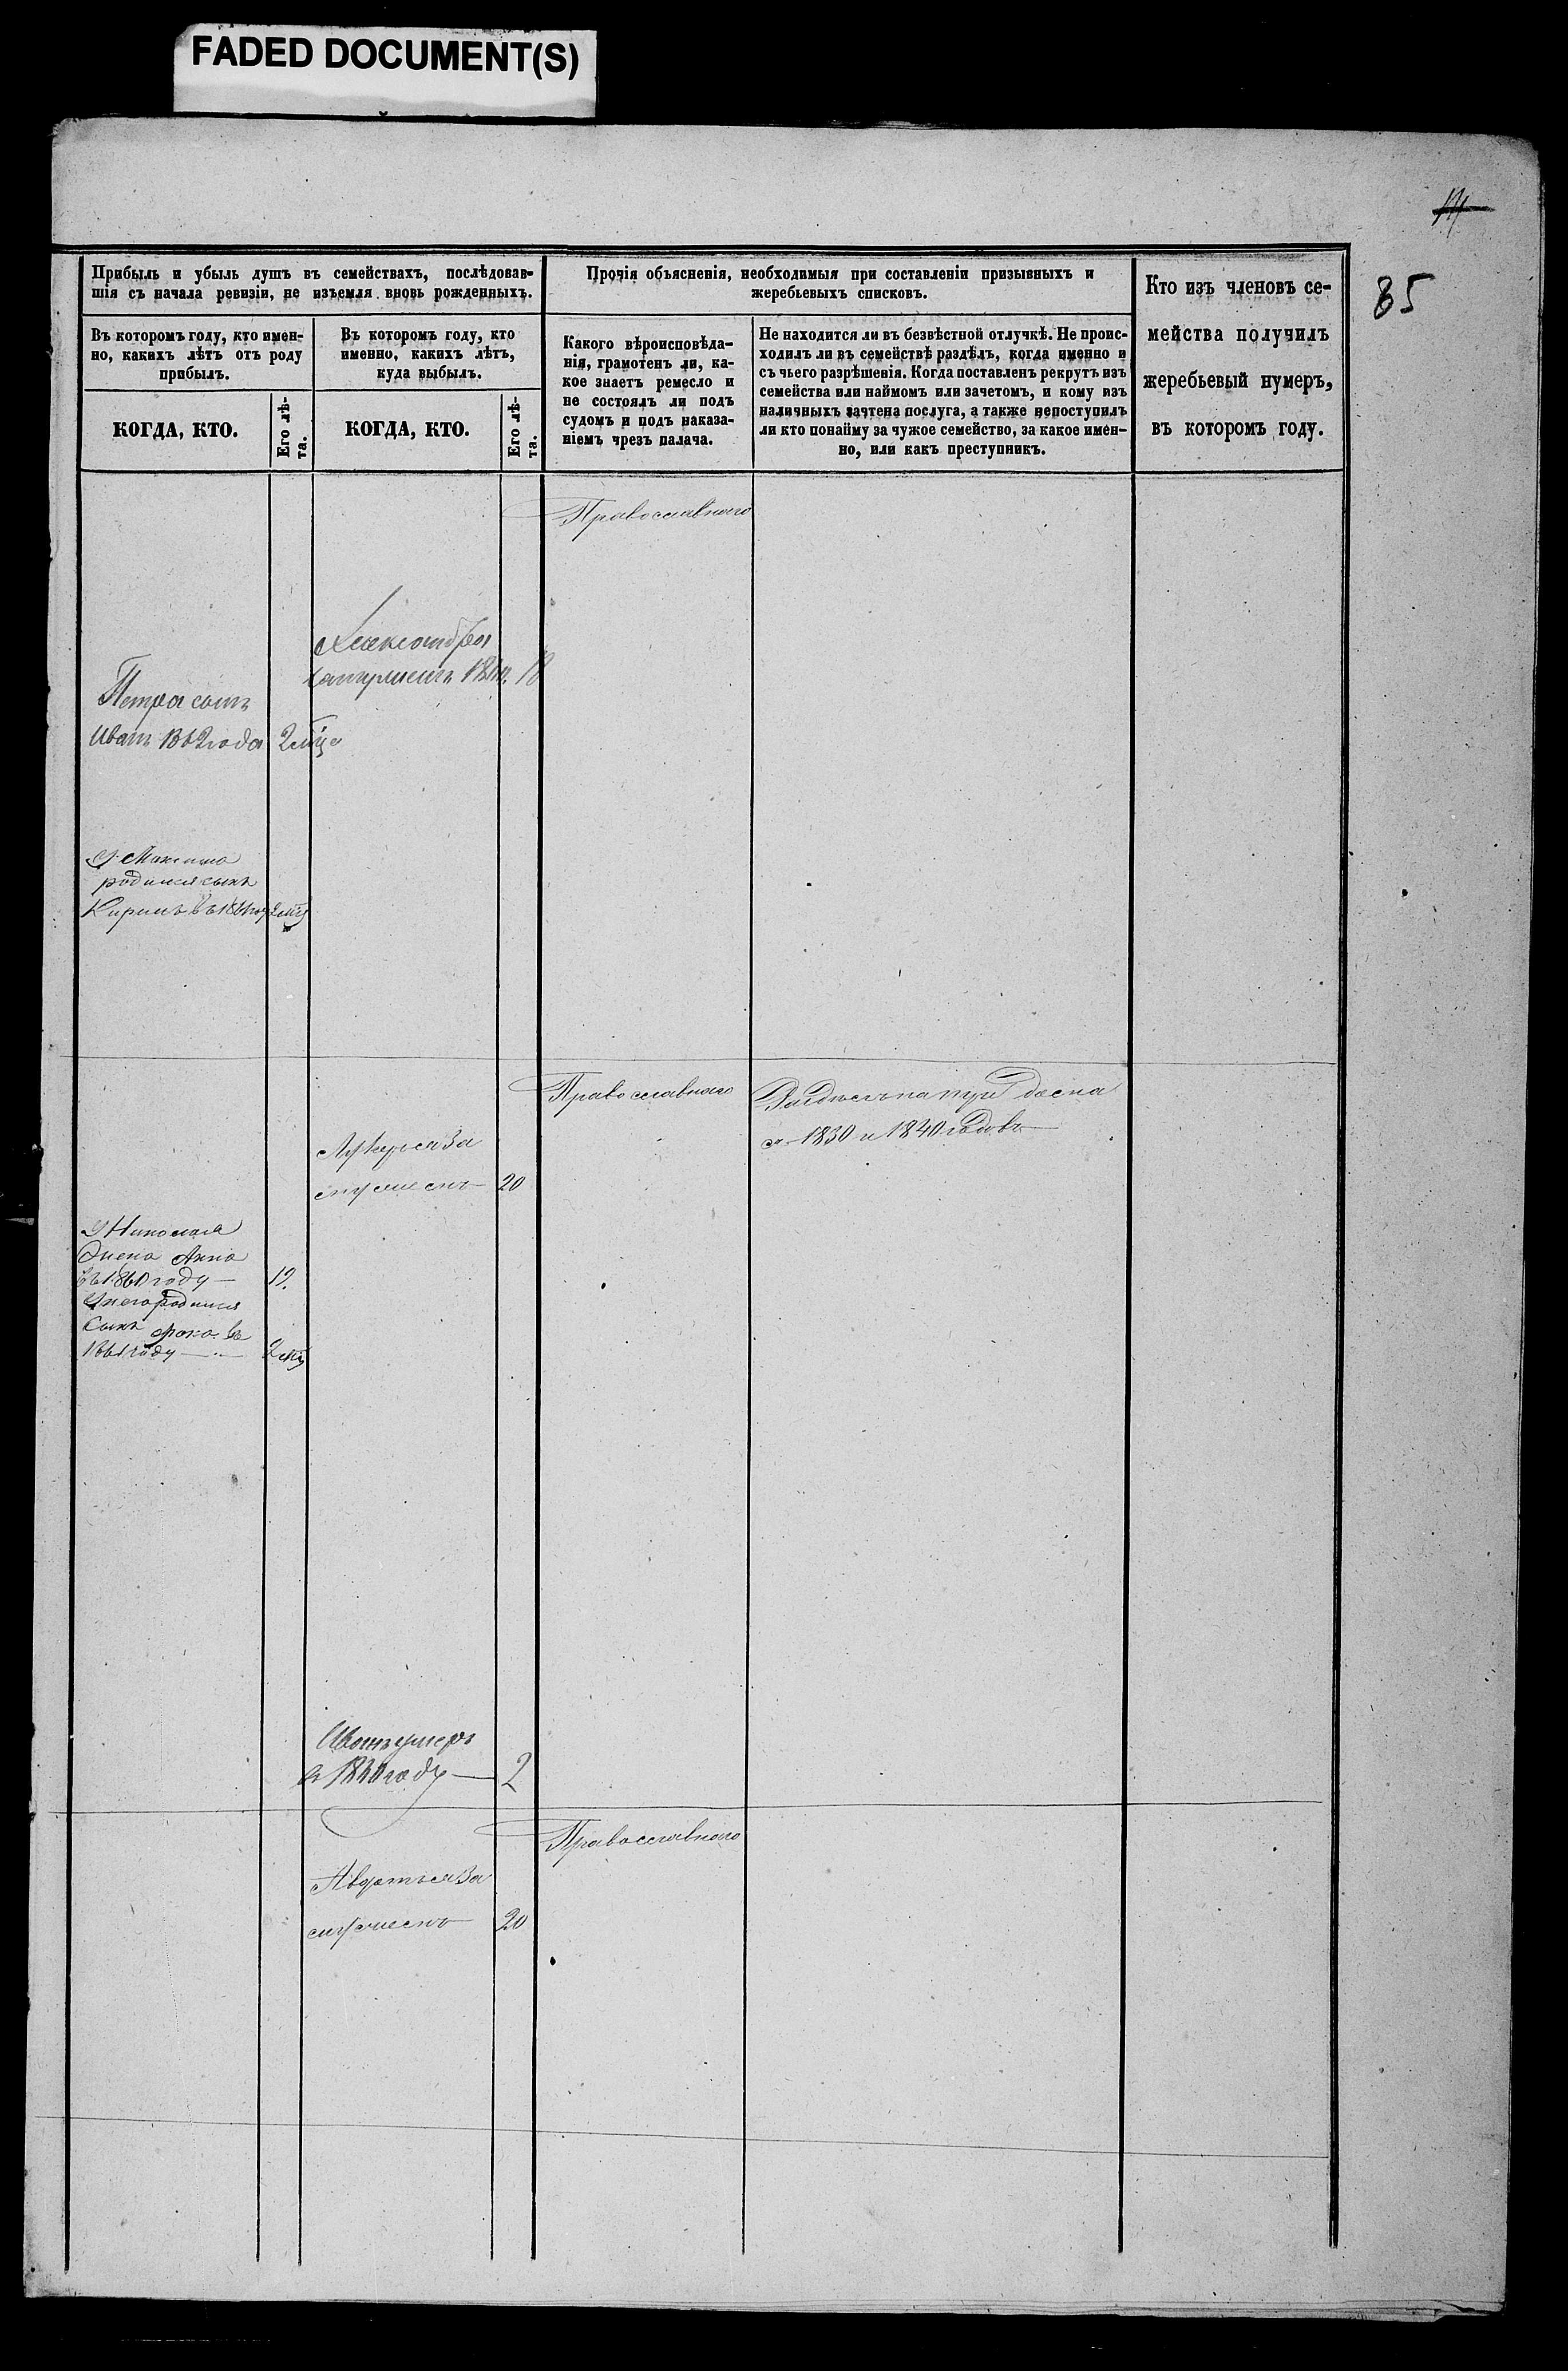 FADED DOCUMENT(S)
85
Прибыль и убыль душъ въ семействахъ, послѣдовав-
шія съ начала ревизіи, не изъемля вновь рожденныхъ.
Въ которомъ году, кто имен-
но, какихъ лѣтъ отъ роду
прибылъ.
КОГДА, КТО.
Его лѣ-
та.
Въ которомъ году, кто
именно, какихъ лѣтъ,
куда выбылъ.
КОГДА, КТО.
Его лѣ-
та.
Прочія объясненія, необходимыя при составленіи призывныхъ и
жеребьевыхъ списковъ.
Какого вѣроисповѣда-
нія, грамотенъ ли, ка-
кое знаетъ ремесло и
не состоялъ ли подъ
судомъ и подъ наказа-
ніемъ чрезъ палача.
Не находится ли въ безвѣстной отлучкѣ. Не проис-
ходилъ ли въ семействѣ раздѣлъ, когда именно и
съ чьего разрѣшенія. Когда поставленъ рекрутъ изъ
семейства или наймомъ или зачетомъ, и кому изъ
наличныхъ зачтена послуга, а также непоступилъ
ли кто понайму за чужое семейство, за какое имен-
но, или какъ преступникъ.
Кто изъ членовъ се-
мейства получилъ
жеребьевый нумеръ,
въ которомъ году.
Православнаго
Александра
18
Петра сынъ
Иванъ 1862 года 2 мѣс
У Максима
родился сынъ
Кирилъ въ 1861 году 2 мѣс
Православнаго
на три
1830 и 1840 годовъ
Лукерья За
мужемъ 20
У Николая
Жена Анна
въ 1860 году 19.
У него родился
Сынъ въ
1861 году 2 мѣс
Иванъ умеръ
въ году 2
Православнаго
Авдотья За
мужемъ 20